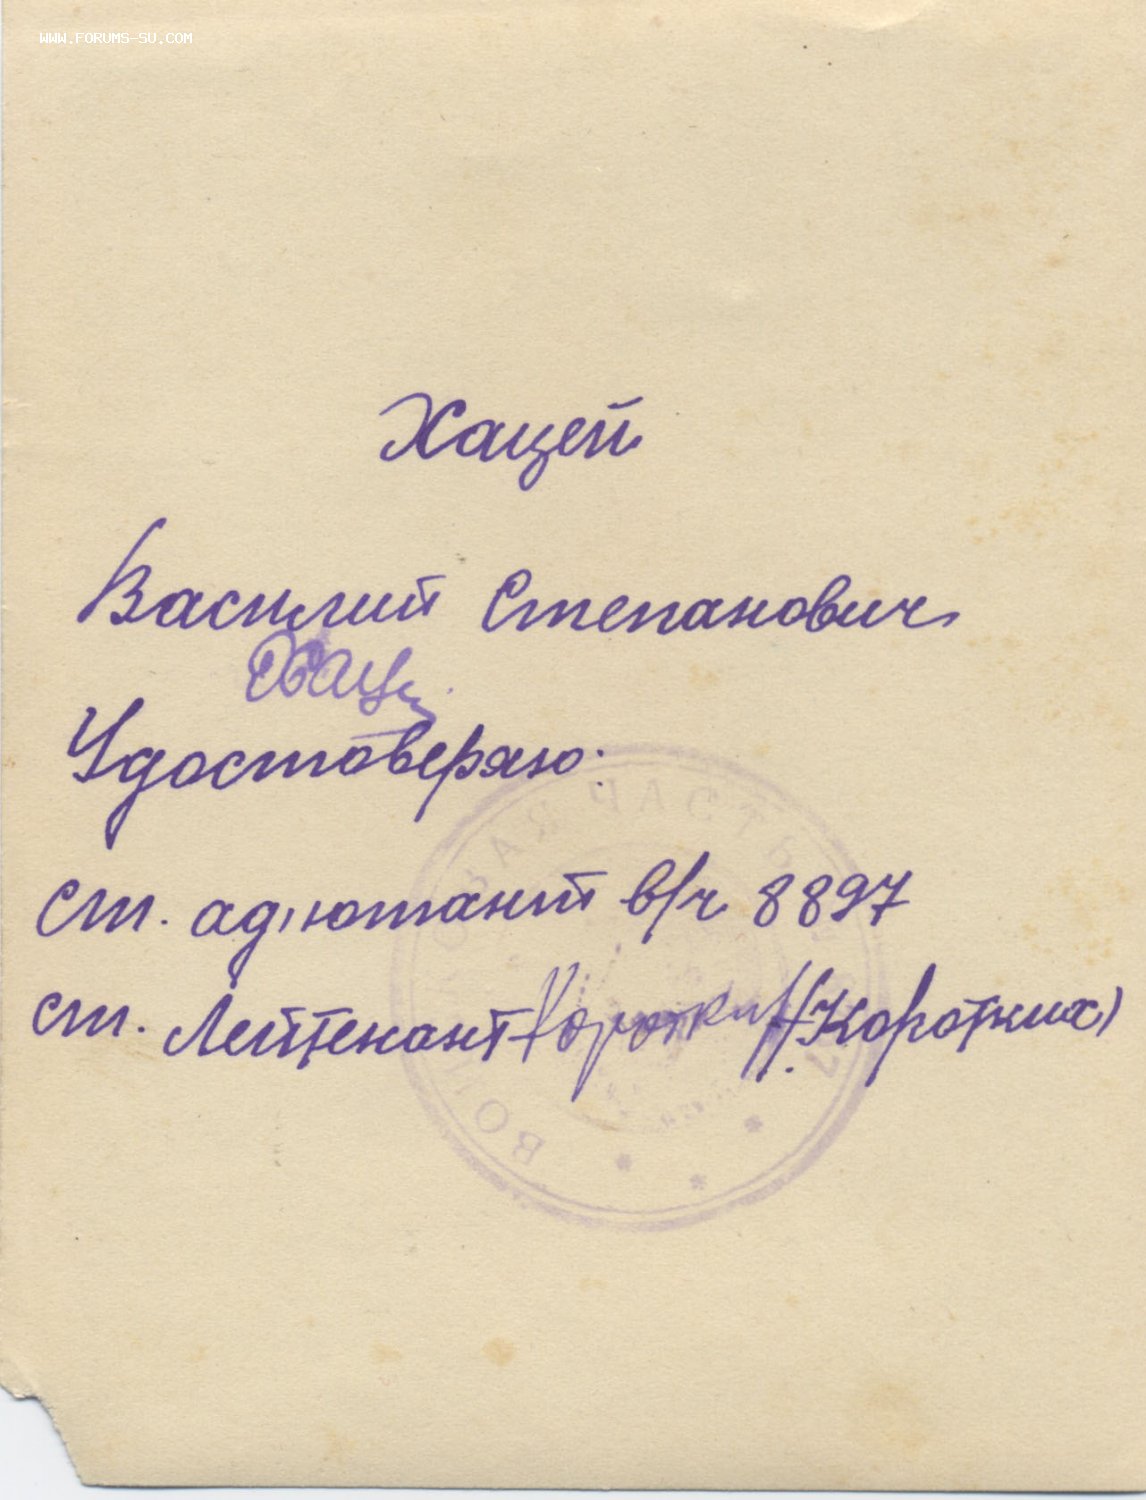 WWW.FORUMS-SU.COM
Хацей
Василий Степанович
Удостоверяю:
ст. адъютант в/ч 8897
ст. Лейтенант Коротких /Коротких/
ЧАСТЬ